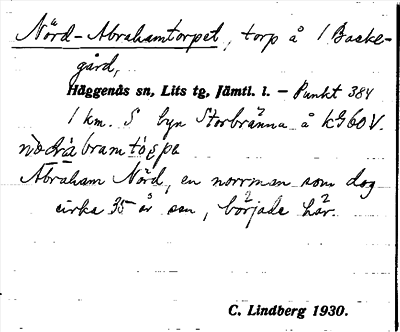 Nörd-Abrahamtorpet, torp å 1 Backe-
gård,
Häggenås sn, Lits tg. Jämtl. l. – Punkt 384
1 km. S byn Storbränna å kG60V.
Abraham Nörd, en norrman som dog
cirka 35 år sen, började här.
C. Lindberg 1930.